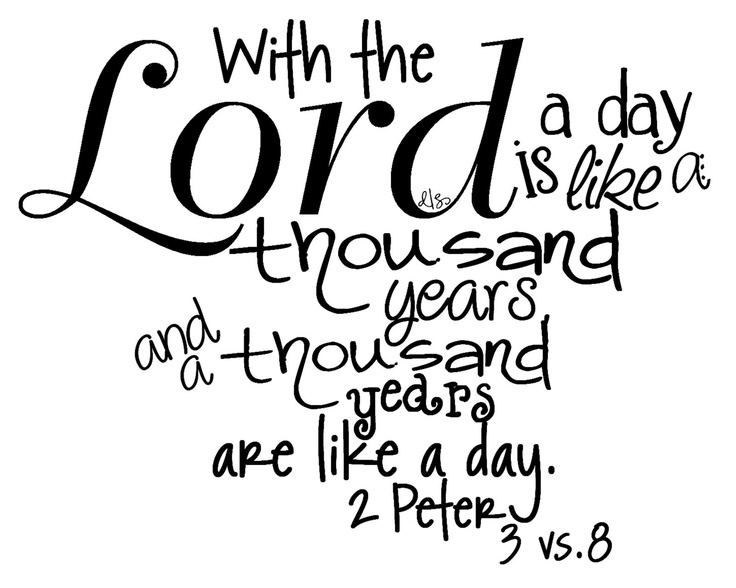 With the
Lord a day
is like a
thousand
years
and a thousand
years
are like a day.
2 Peter
3 vs. 8